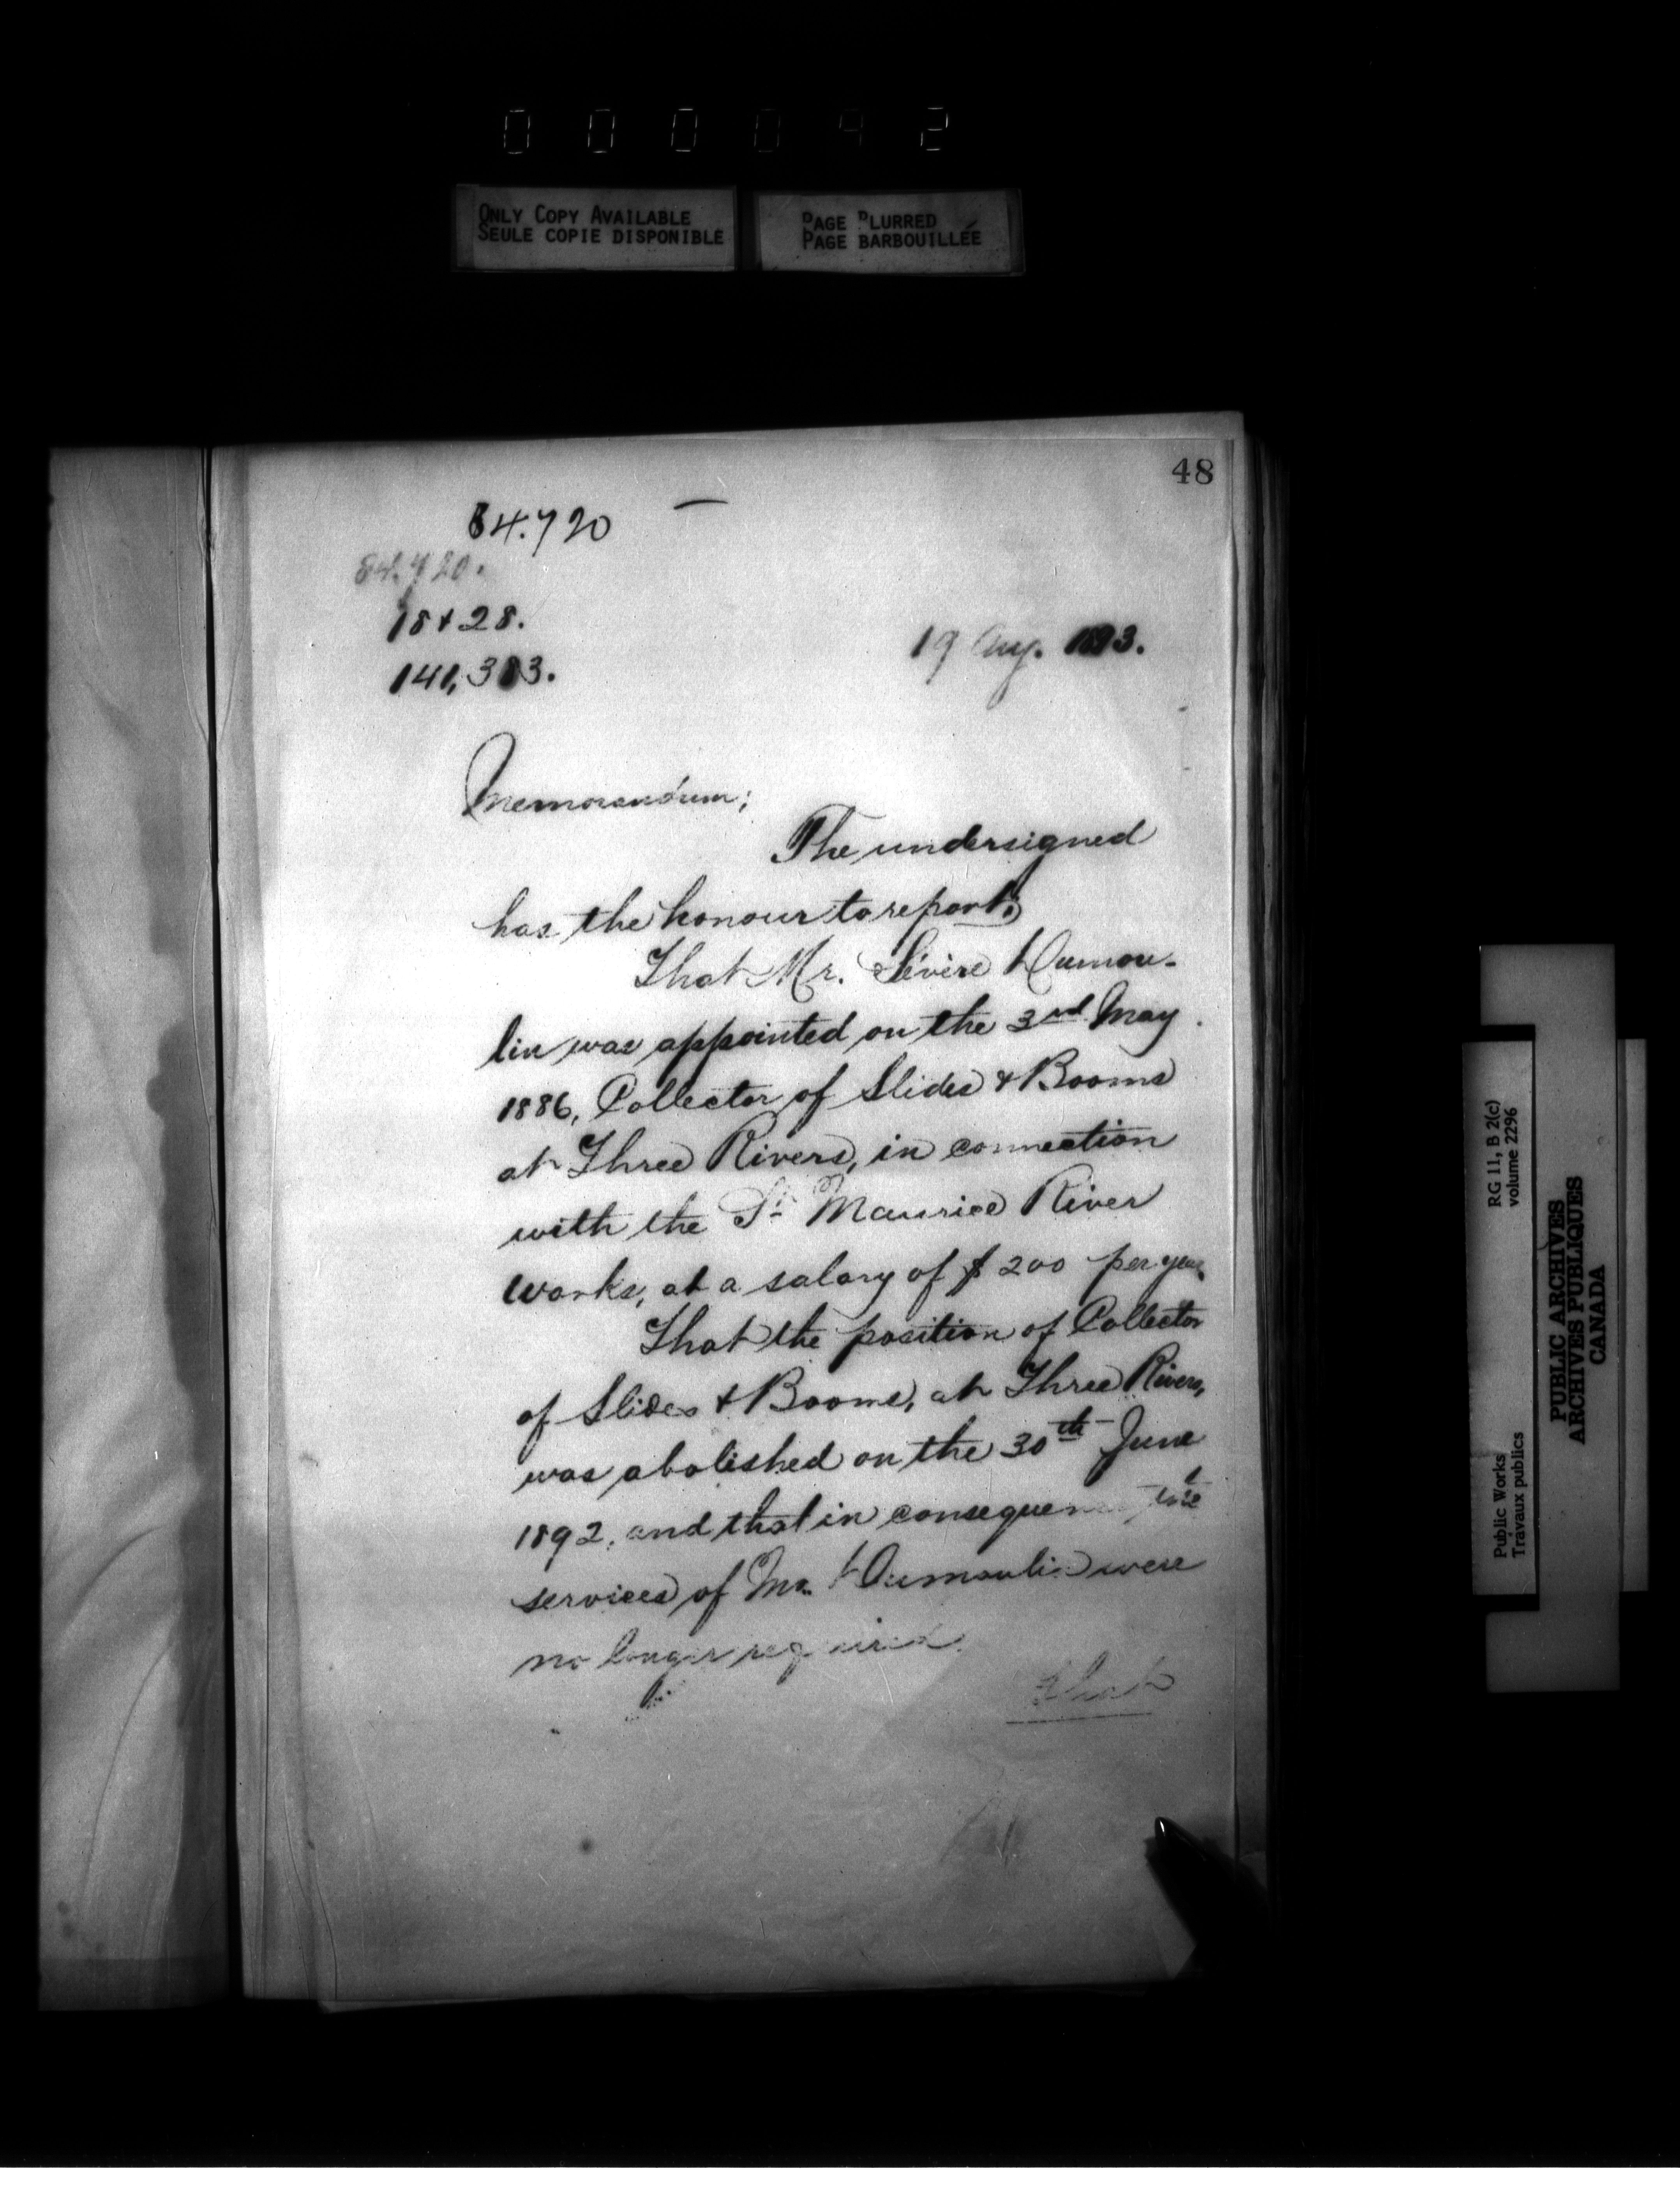 0 0 0 0 4 2
ONLY COPY AVAILABLE
SEULE COPIE DISPONIBLE
PAGE BLURRED
PAGE BARBOUILLÉE
48
84.720
84.720.
18+28.
141,383.
19 Aug. 1893.
Memorandum;
The undersigned
has the honour to report:
That Mr. Sévère Dumou-
lin was appointed on the 3rd May
1886, Collector of Slides & Booms
at Three Rivers, in connection
with the St. Maurice River
Works, at a salary of $200 per year.
That the position of Collector
of Slides & Booms, at Three Rivers,
was abolished on the 30th June
1892, and that in consequence the
services of Mr. Dumoulin were
no longer required.
That
RG 11, B 2(c)
volume 2296
Public Works
Travaux publics
PUBLIC ARCHIVES
ARCHIVES PUBLIQUES
CANADA